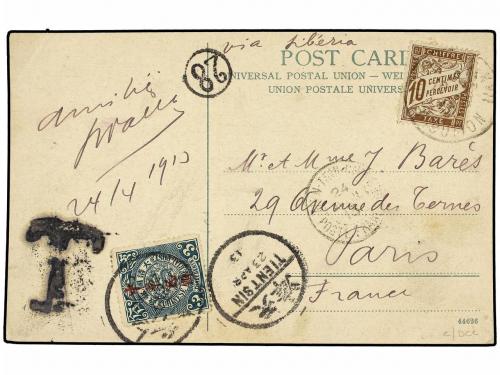 via Libéria
POST CARD
UNIVERSAL POSTAL UNION
UNION POSTALE UNIVERS
28
amitiés
24/4 1913
CHIFFRE
10 CENTIMES À PERCEVOIR
TAXE
Mr et Mme J Barés
29 Avenue des Ternes
Paris
France
24
T
3
TIENTSIN
23 APR
13
44696